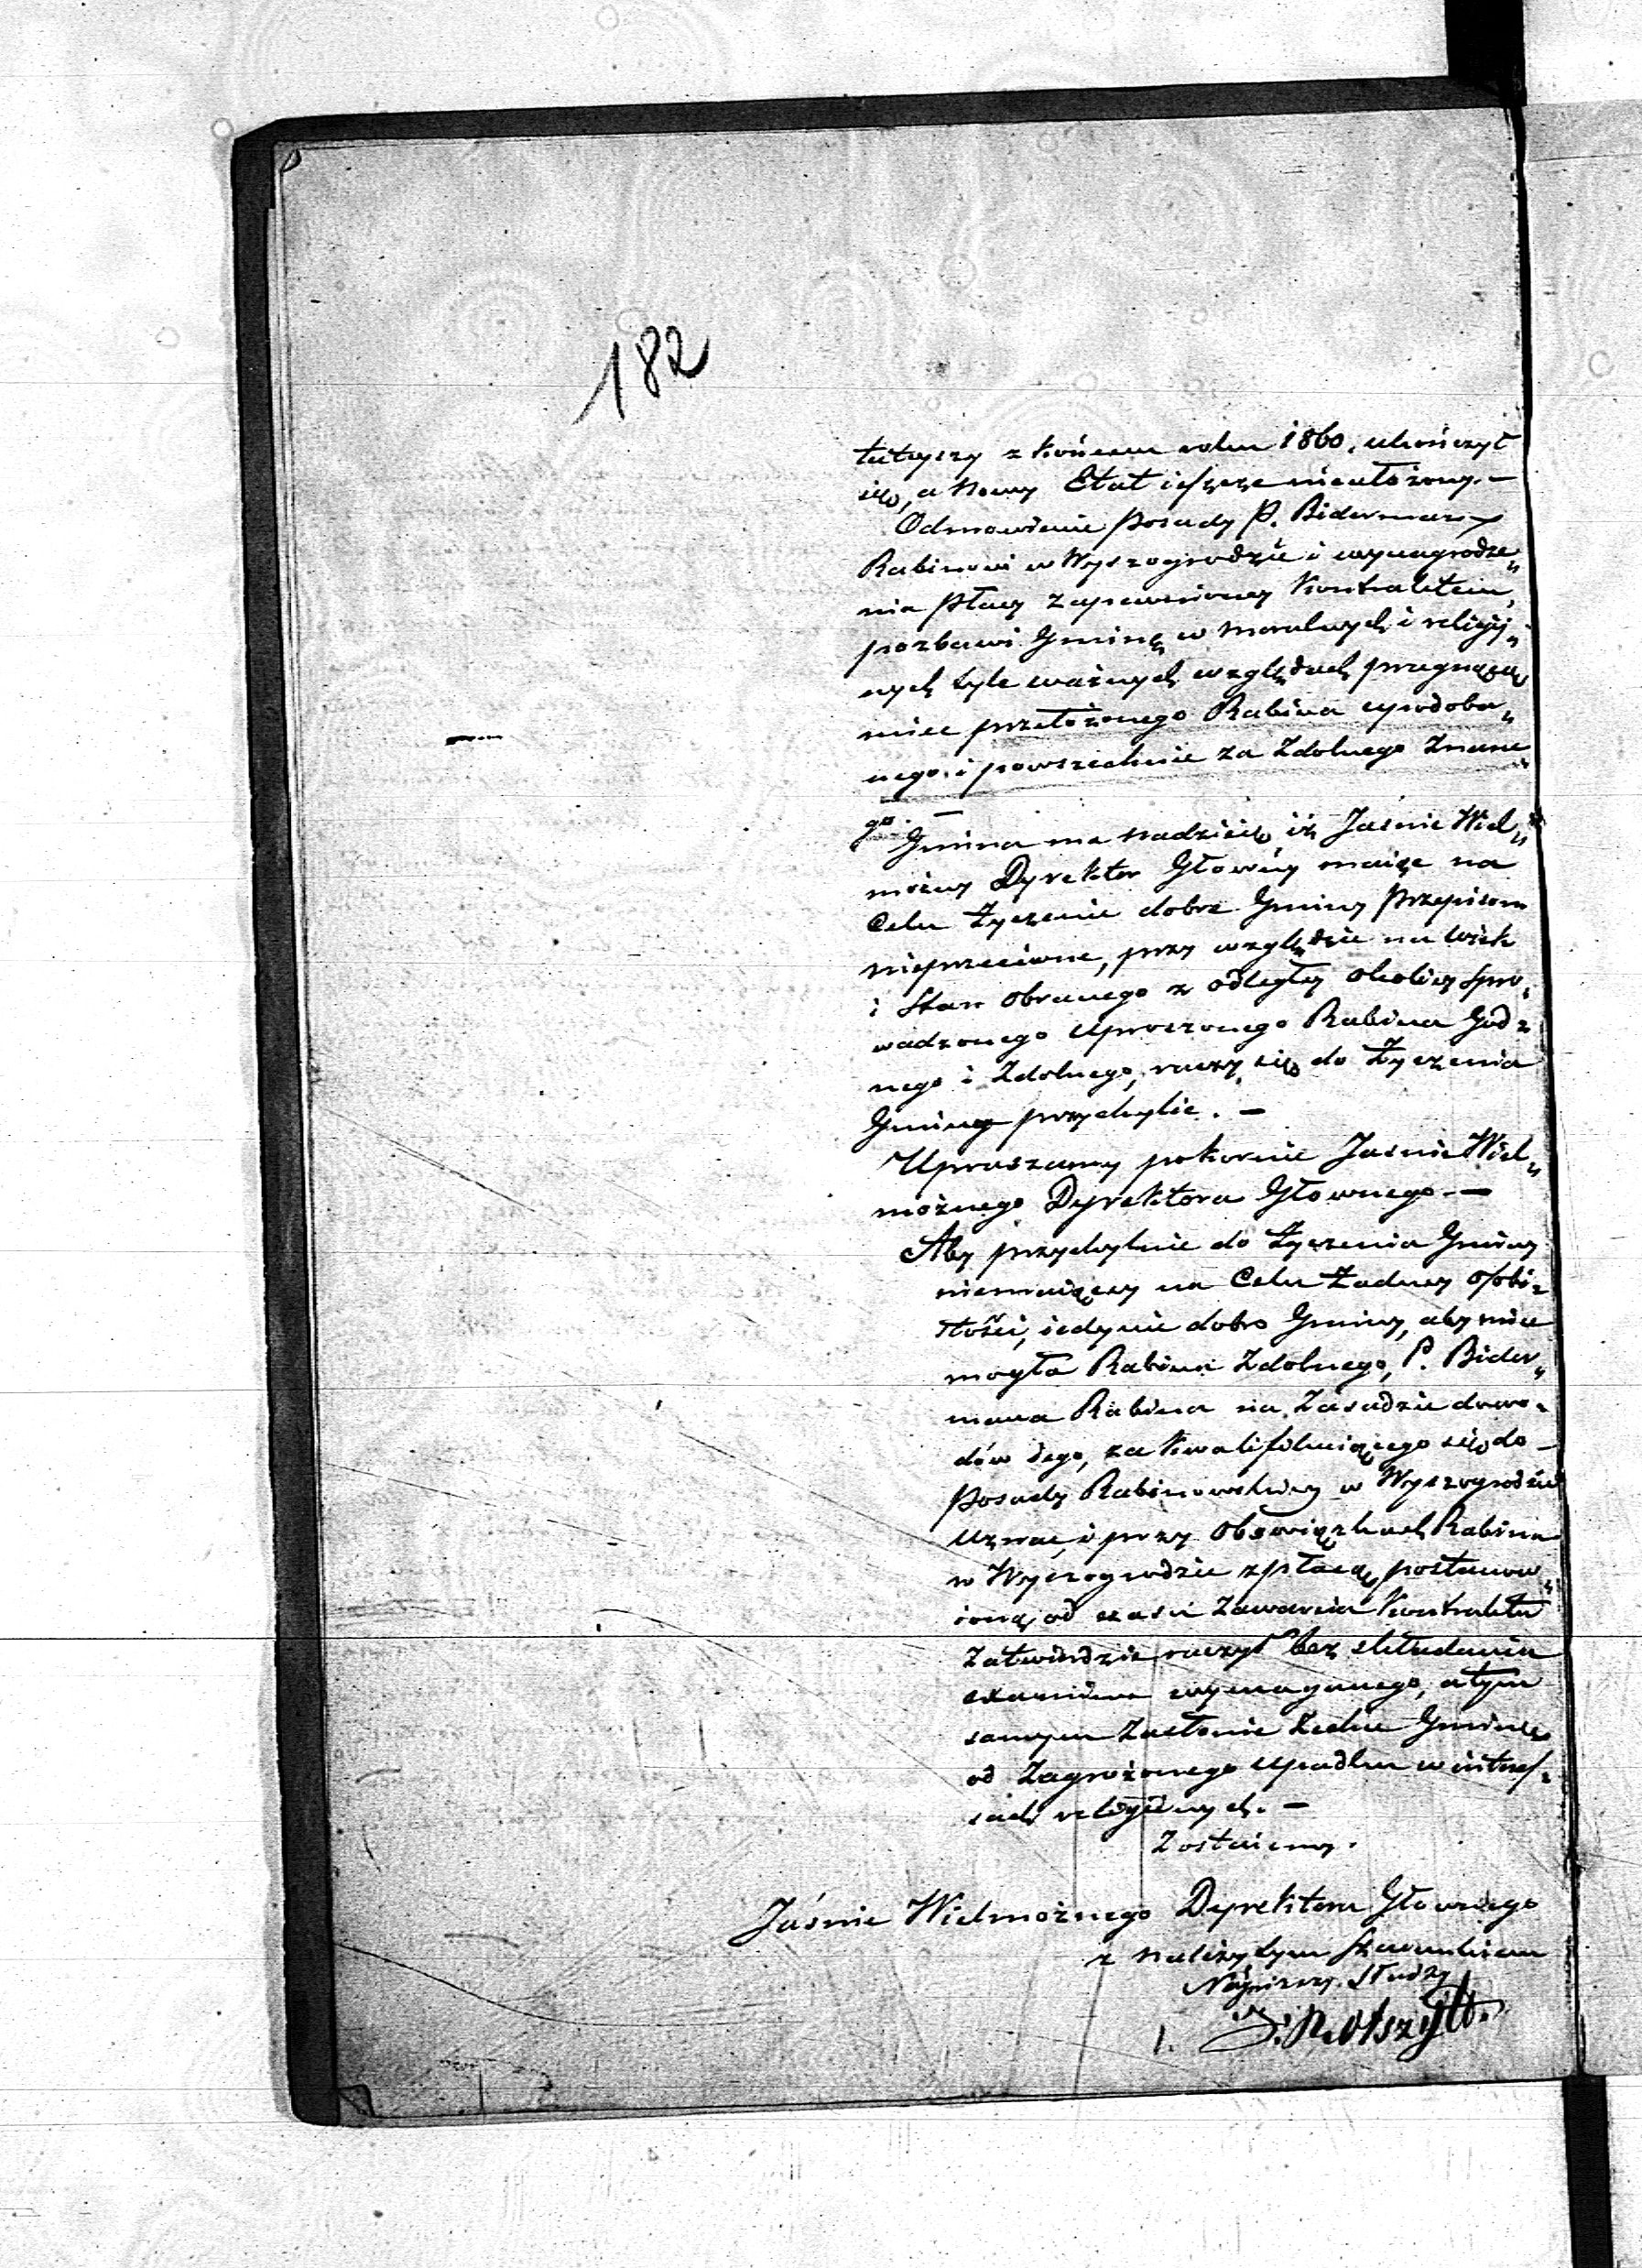 182
tutejszy z końcem roku 1860. ukończył
się, a nowy Etat ieszcze nieułożony. —
Odmówienie posady P. Biderman
Rabinowi w Wyszogrodzie i wynagrodze„
nia płacy zapewnioney Kontraktem,
pozbawi Gminę w moralnych i religij„
nych tyle ważnych względach pragnącą
miec przełożonego Rabina upodoba„
nego i powszechnie za Zdolnego Znane„
go. —
Gmina ma nadzieię, iż Jaśnie Wiel„
możny Dyrektor Głowny maiąc na
Celu Życzenie dobra Gminy Przepisom
nieprzeciwne, przy względzie na wiek
i Stan Obranego z odległey okolicy spro„
wadzonego uproszonego Rabina God„
nego i Zdolnego, raczy się do Życzenia
Gminy przychylic. —
Upraszamy pokornie Jasnie Wiel„
możnego Dyrektora Głownego. —
Aby przychylnie do Życzenia Gminy
niemaiącey na Celu Żadney osobi„
stości, iedynie dobro Gminy, aby mieć
mogła Rabina Zdolnego, P. Bider„
mana Rabina na Zasadzie dowo„
dów iego, za kwalifikuiącego się do
Posady Rabinowskiey w Wyszogrodzie
uznać, i przy Obowiązkach Rabina
w Wyszogrodzie z płacą postanow„
ioną od czasu Zawarcia Kontraktu
Zatwierdzic raczył bez składania
examinu wymaganego, a tym
samym Zasłonic Zechce Gminę
od Zagrożonego upadku w interes„
sach religijnych. —
Zostaiemy.
Jaśnie Wielmożnego Dyrektora Głownego
z należytym Szacunkiem
Nayniżsi Słudzy
1.